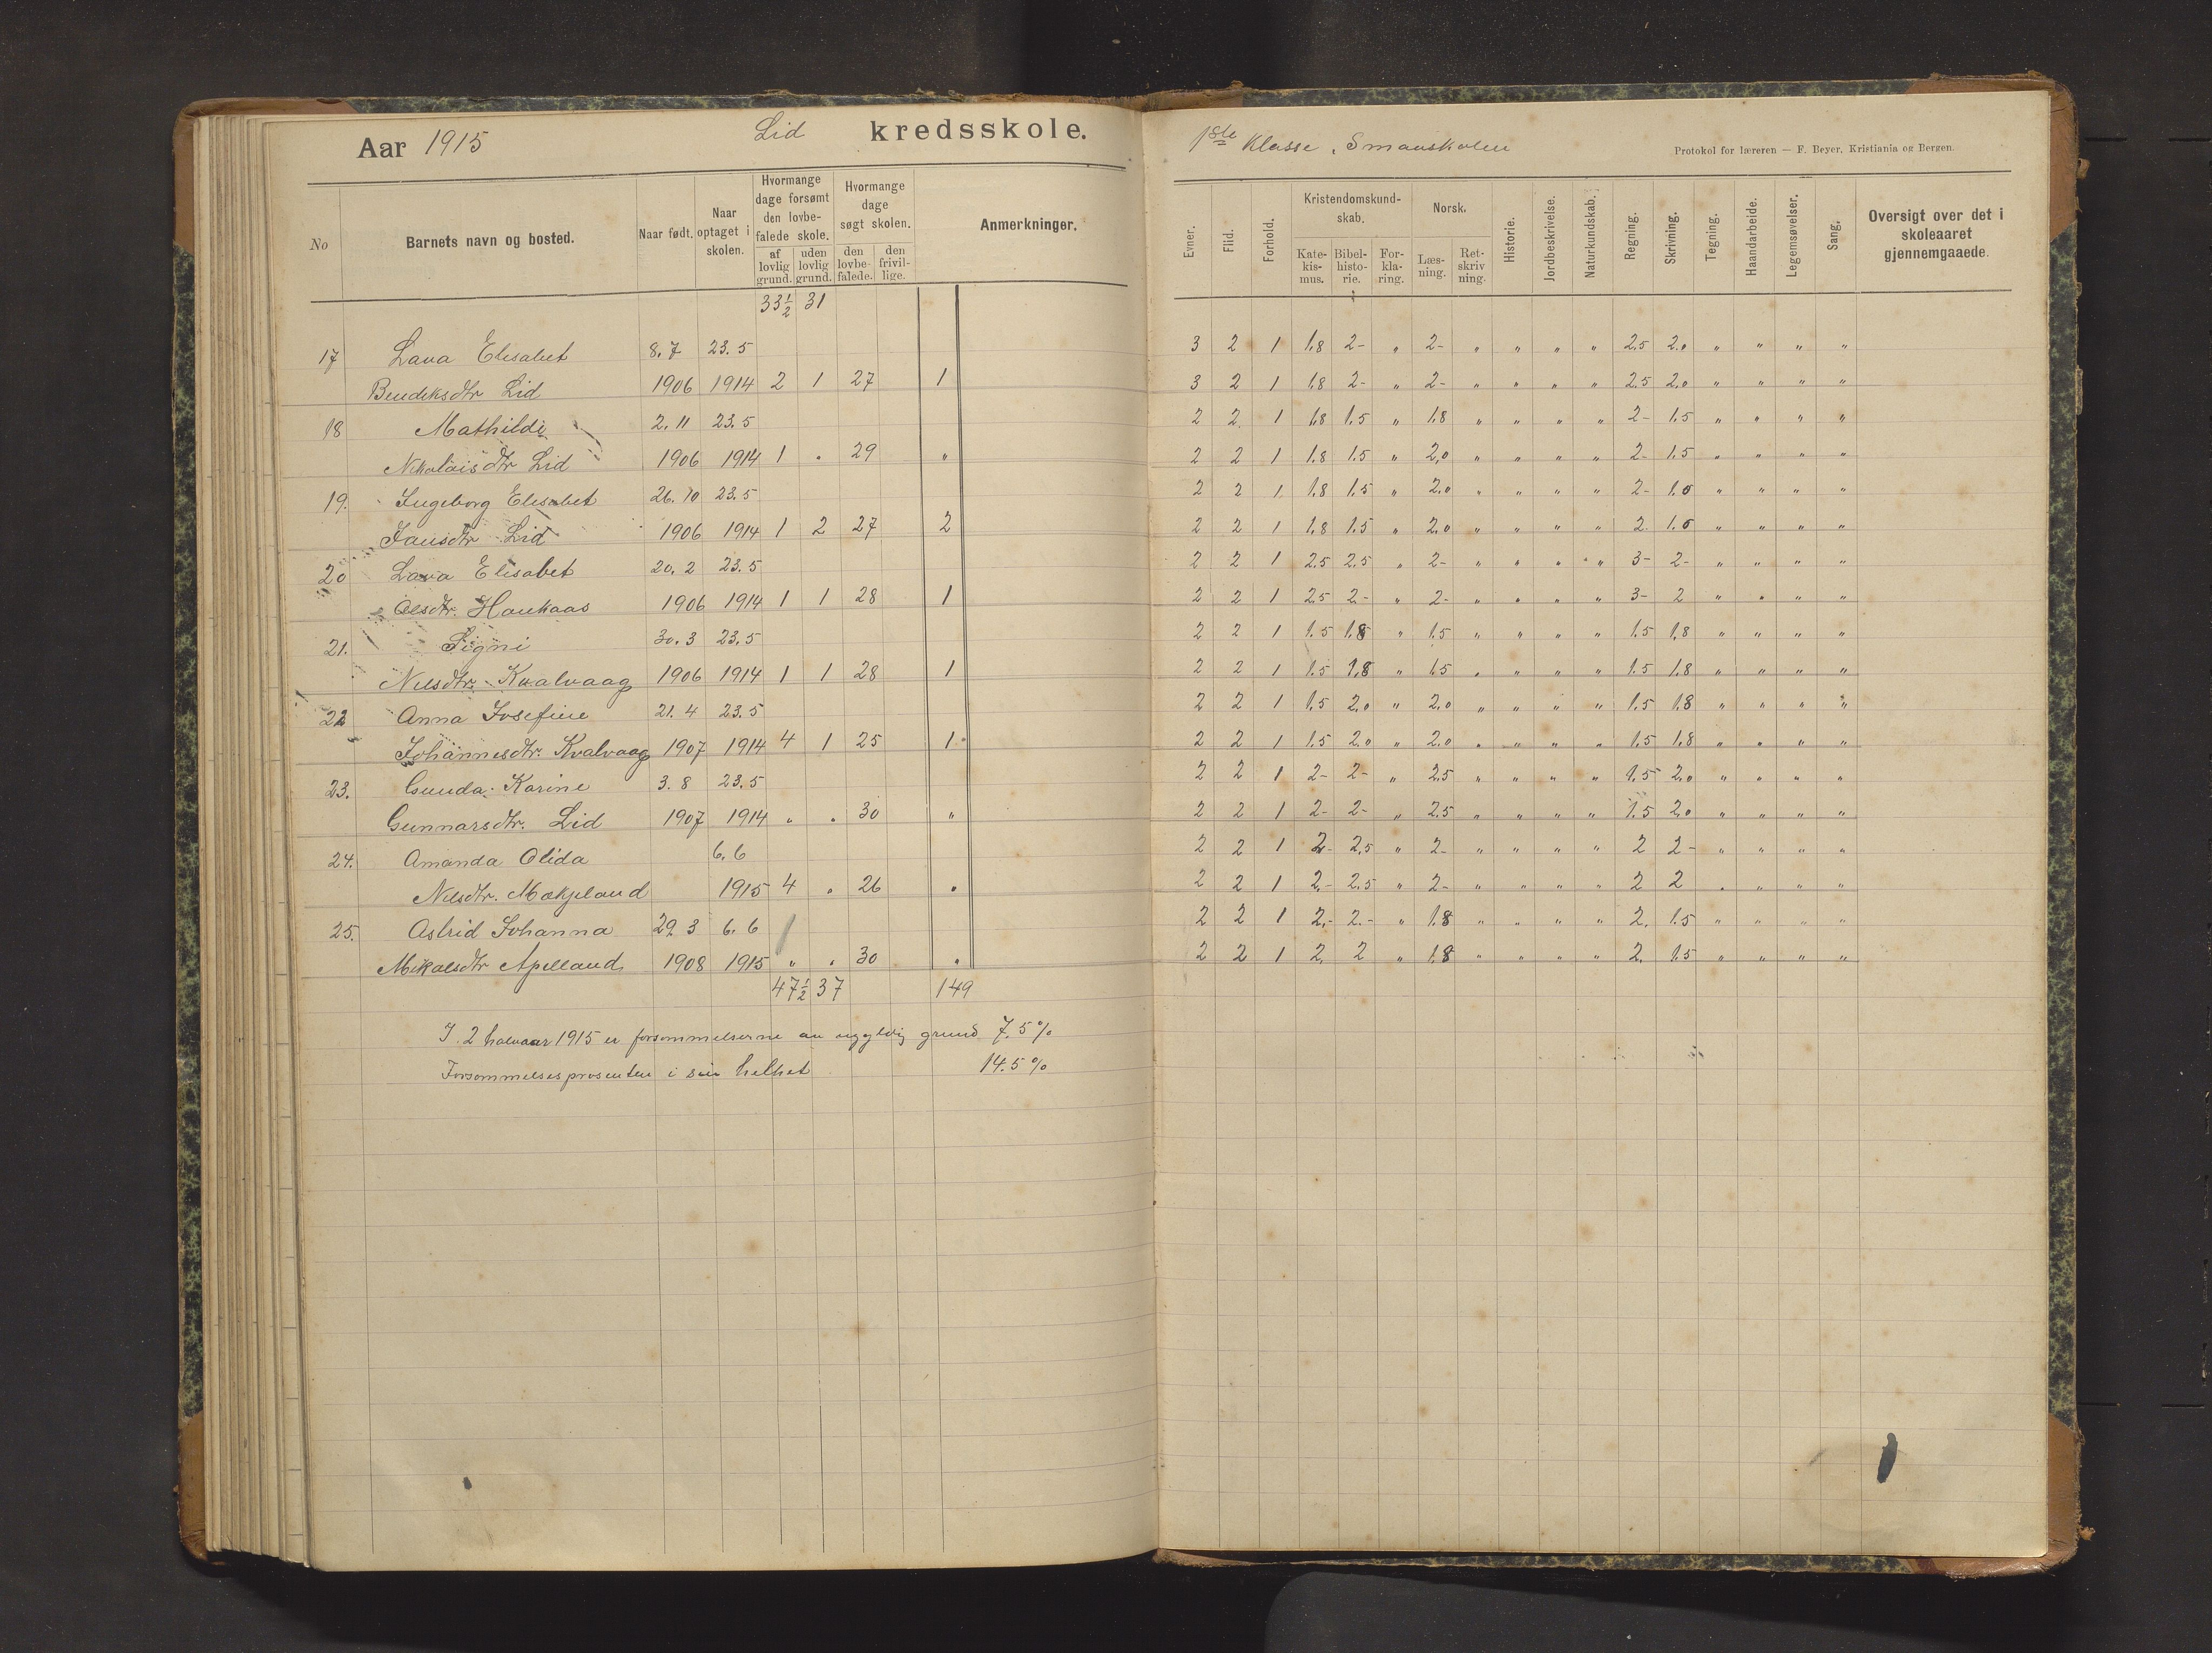 Aar 1915 Lid kredsskole.
No
Barnets navn og bosted.
Naar født.
Naar optaget i skolen.
Hvormange dage forsømt den lovbefalede skole.
af lovlig grund.
uden lovlig grund.
Hvormange dage søgt skolen.
den lovbefalede.
den frivillige.
Anmerkninger.
33½ 31
17 Lava Elisabet 8.7 23.5
Bendiksdtr Lid 1906 1914 2 1 27 1
18 Mathilde 2.11 23.5
Nikolaisdtr Lid 1906 1914 1 " 29 "
19. Ingeborg Elisabet 26.10 23.5
Jansdtr Lid 1906 1914 1 2 27 2
20 Lava Elisabet 20.2 23.5
Olsdtr. Haukaas 1906 1914 1 1 28 1
21. Signi 30.3 23.5
Nilsdtr. Kvalvaag 1906 1914 1 1 28 1
22 Anna Josefine 21.4 23.5
Johannesdtr. Kvalvaag 1907 1914 4 1 25 1
23. Gunda Karine 3.8 23.5
Gunnarsdtr. Lid 1907 1914 " " 30 "
24. Amanda Olida 6.6
Nilsdtr. Mækjeland 1915 4 " 26 "
25. Astrid Johanna 29.3 6.6
Mikalsdtr Apelland 1908 1915 " " 30 "
47½ 37 149
I 2 halvaar 1915 er forsømmelserne av ugyldig grund 7.5 %
Forsømmelsesprosenten i sin helhet 14.5 %
1ste Klasse, Smaaskolen
Protokol for læreren — F. Beyer, Kristiania og Bergen.
Evner.
Flid.
Forhold.
Kristendomskundskab.
Katekismus.
Bibelhistorie.
Forklaring.
Norsk.
Læsning.
Retskrivning.
Historie.
Jordbeskrivelse.
Naturkundskab.
Regning.
Skrivning.
Tegning.
Haandarbeide.
Legemsøvelser.
Sang.
Oversigt over det i skoleaaret gjennemgaaede.
3 2 1 1.8 2- " 2- " " " " 2.5 2.0 " " " "
3 2 1 1.8 2- " 2- " " " " 2.5 2.0 " " " "
2 2 1 1.8 1.5 " 1.8 " " " " 2- 1.5 " " " "
2 2 1 1.8 1.5 " 2.0 " " " " 2- 1.5 " " " "
2 2 1 1.8 1.5 " 2.0 " " " " 2- 1.0 " " " "
2 2 1 1.8 1.5 " 2.0 " " " " 2 1.0 " " " "
2 2 1 2.5 2.5 " 2- " " " " 3- 2- " " " "
2 2 1 2.5 2- " 2- " " " " 3- 2 " " " "
2 2 1 1.5 1.8 " 1.5 " " " " 1.5 1.8 " " " "
2 2 1 1.5 1.8 " 1.5 " " " " 1.5 1.8 " " " "
2 2 1 1.5 2.0 " 2.0 " " " " 1.5 1.8 " " " "
2 2 1 1.5 2.0 " 2.0 " " " " 1.5 1.8 " " " "
2 2 1 2- 2- " 2.5 " " " " 1.5 2.0 " " " "
2 2 1 2- 2- " 2.5 " " " " 1.5 2.0 " " " "
2 2 1 2- 2.5 " 2- " " " " 2 2- " " " "
2 2 1 2- 2.5 " 2- " " " " 2 2 " " " "
2 2 1 2- 2- " 1.8 " " " " 2. 1.5 " " " "
2 2 1 2 2 " 1.8 " " " " 2. 1.5 " " " "